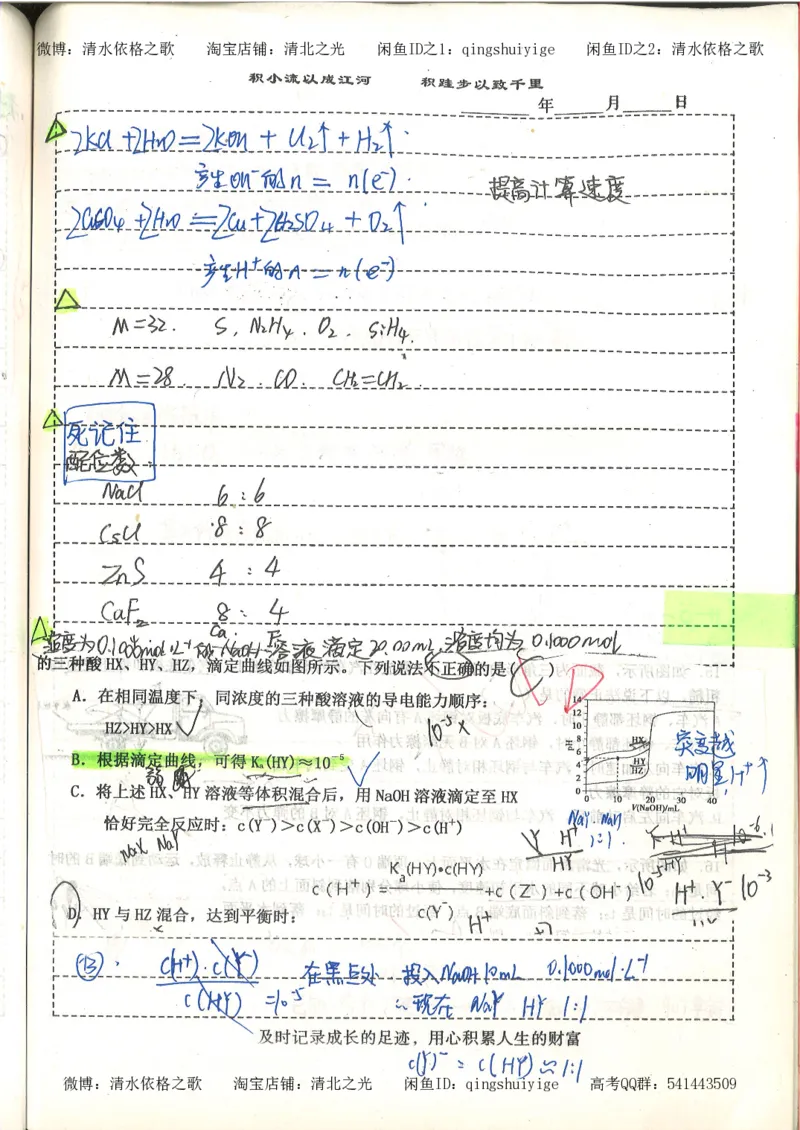 微博：清水依格之歌 淘宝店铺：清北之光 闲鱼ID之1：qingshuiyige 闲鱼ID之2：清水依格之歌
积小流以成江河 积跬步以致千里
年 月 日
2KCl+2H₂O=2KOH+Cl₂↑+H₂↑.
产生OH⁻的n = n(e⁻).
提高计算速度
2CuSO₄+2H₂O=2Cu+2H₂SO₄+O₂↑
产生H⁺的n = n(e⁻)
M=32. S, N₂H₄. O₂. SiH₄.
M=28. N₂. CO. CH₂=CH₂.
死记住
配位数:
NaCl 6:6
CsCl 8:8
ZnS 4:4
CaF₂ 8:4
Ca F
浓度为0.1000mol·L⁻¹的NaOH溶液滴定20.00mL浓度均为0.1000mol
的三种酸 HX、HY、HZ，滴定曲线如图所示。下列说法不正确的是( )
A．在相同温度下，同浓度的三种酸溶液的导电能力顺序：
HZ>HY>HX
10⁻⁵x
B．根据滴定曲线，可得 Kₐ(HY)≈10⁻⁵
C．将上述 HX、HY 溶液等体积混合后，用 NaOH 溶液滴定至 HX
恰好完全反应时：c(Y⁻)>c(X⁻)>c(OH⁻)>c(H⁺)
NaX NaY
pH
14
12
10
8
6
4
2
0
HX
HY
HZ
0 10 20 30 40
V(NaOH)/mL
突变越
明显,H⁺↑
1:1
Y H⁺
HY
H⁺.Y⁻ 10⁻³
D．HY 与 HZ 混合，达到平衡时：
c(H⁺)=Kₐ(HY)·c(HY)/c(Y⁻)+c(Z⁻)+c(OH⁻)
H⁺
⑬. c(H⁺).c(Y⁻)/c(HY) =10⁻⁵
在黑点处 投入NaOH 10mL 0.1000mol·L⁻¹
∴现在 NaY HY 1:1
及时记录成长的足迹，用心积累人生的财富
c(Y)⁻=c(HY)≈1:1
微博：清水依格之歌 淘宝店铺：清北之光 闲鱼ID：qingshuiyige 高考QQ群：541443509